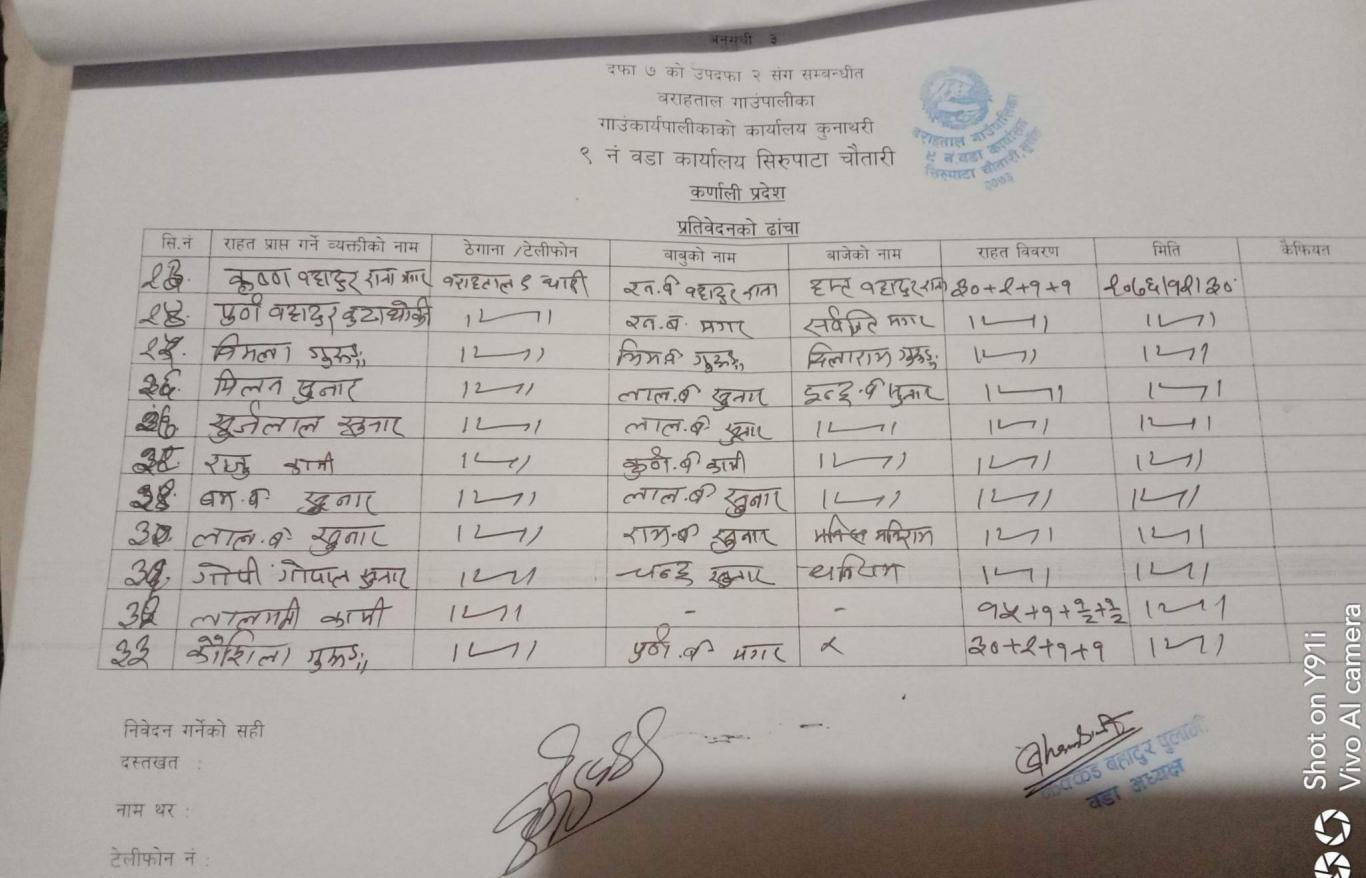 अनुसूची ३
दफा ७ को उपदफा २ संग सम्बन्धीत
वराहताल गाउंपालीका
गाउंकार्यपालीकाको कार्यालय कुनाथरी
९ नं वडा कार्यालय सिरुपाटा चौतारी
कर्णाली प्रदेश
प्रतिवेदनको ढांचा
वराहताल गाउँपालिका
९ नं. वडा कार्यालय
सिरुपाटा चौतारी, सुर्खेत
२०७३
सि.नं राहत प्राप्त गर्ने व्यक्तीको नाम ठेगाना /टेलीफोन बाबुको नाम बाजेको नाम राहत विवरण मिति कैफियत
२३. कृष्ण बहादुर राना मगर वराहताल ९ रत्न.व बहादुर राना बहादुर राना ३०+२+१+१ २०७६।१२।३०
२४. पुर्ण बहादुर बुढाथोकी रत.ब. मगर मगर
२५. विमला गुरुङ्ग गुरुङ्ग दिलाराम गुरुङ्ग
२६. मिलन सुनार लाल.ब सुनार इन्द्र.ब सुनार
२७. सुर्जलाल सुनार लाल.ब सुनार
२८. राजु कामी कामी
२९. बम.ब सुनार लाल.ब सुनार
३०. लाल.ब सुनार राम.ब सुनार मनिराम
३१. गोपी गोपाल सुनार चन्द्र सुनार
३२ लालमती कामी - - १५+१+१/२+१/२
३३ कौशिला गुरुङ्ग पुर्ण.ब मगर × ३०+२+१+१
निवेदन गर्नेको सही
दस्तखत :
नाम थर :
टेलीफोन नं :
बहादुर पुलामी
वडा अध्यक्ष
Shot on Y91i
Vivo AI camera